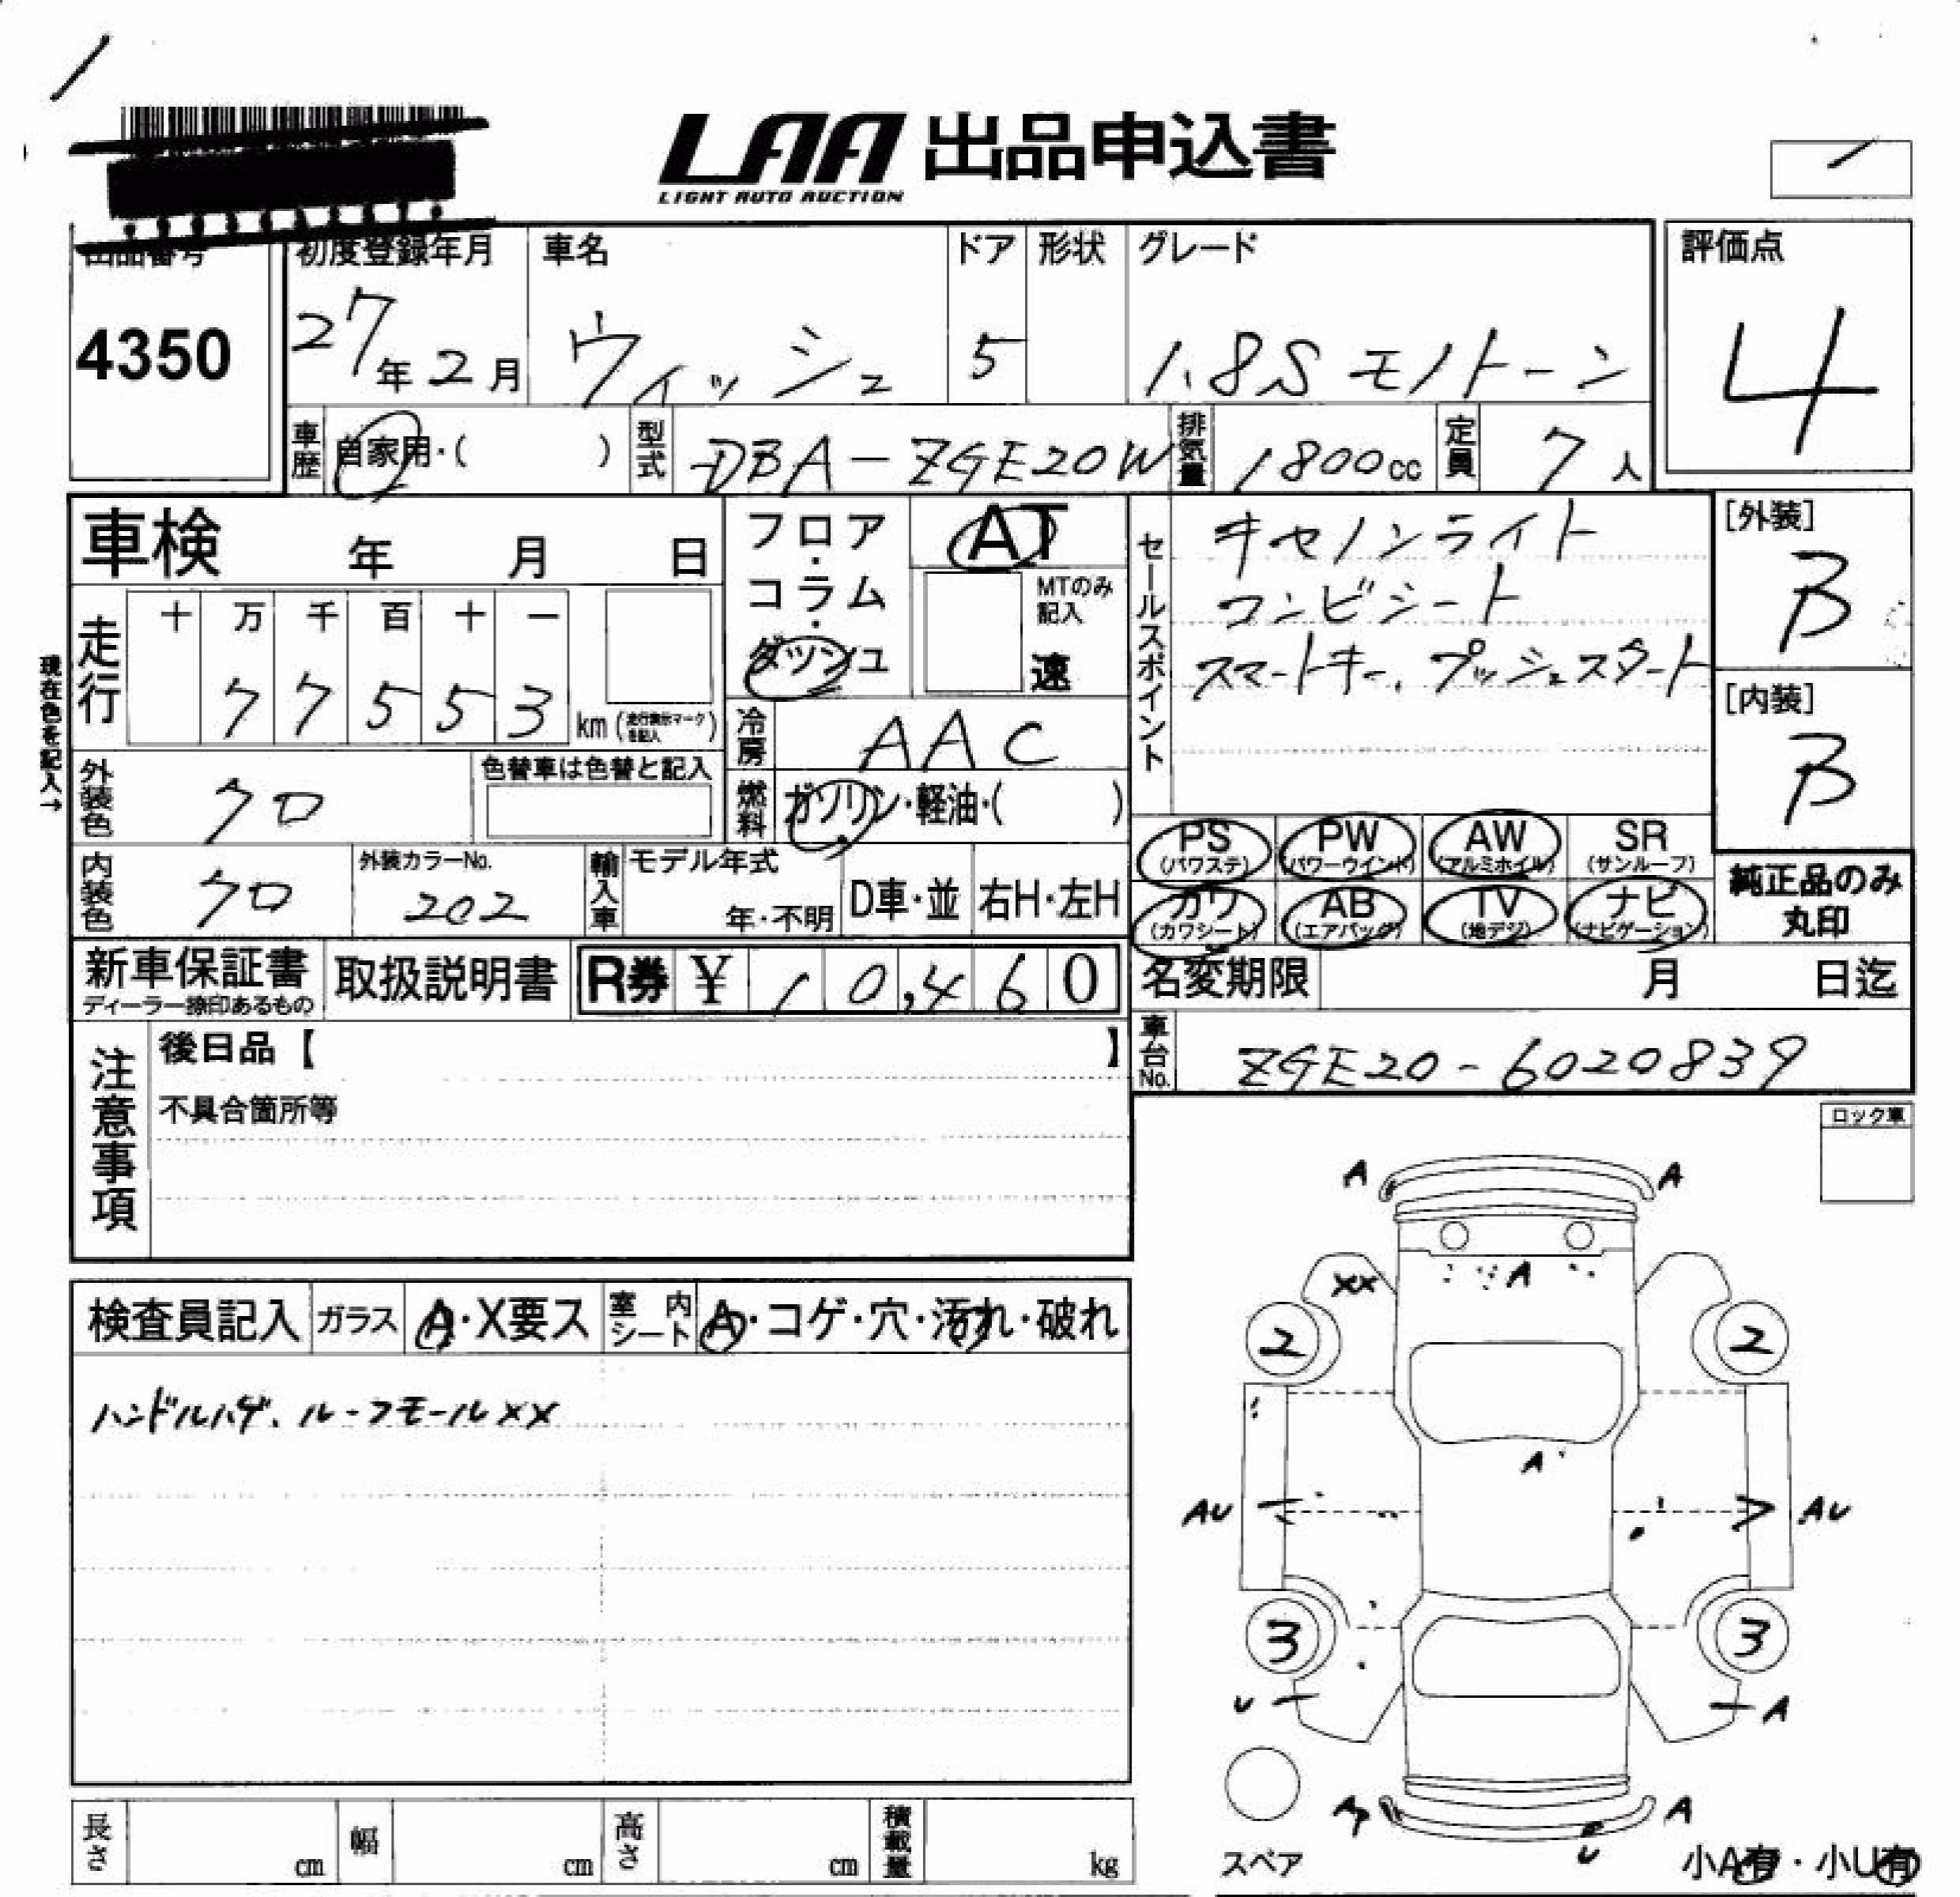 LAA 出品申込書
LIGHT AUTO AUCTION
初度登録年月 車名 ドア 形状 グレード 評価点
4350 27年2月 ウィッシュ 5 1.8S モノトーン 4
車歴 自家用・( ) 型式 DBA-ZGE20W 排気量 1800cc 定員 7人
車検 年 月 日
フロア・コラム・ダッシュ
AT
MTのみ記入
速
セールスポイント
キセノンライト
コンビシート
スマートキー、プッシュスタート
[外装]
B
[内装]
B
現在色を記入→
走行 十 万 千 百 十 一
77553 km (走行表示マークを記入)
冷房 AAC
外装色 クロ 色替車は色替と記入
燃料 ガソリン・軽油・( )
PS (パワステ) PW (パワーウインド) AW (アルミホイル) SR (サンルーフ)
カワ (カワシート) AB (エアバッグ) TV (地デジ) ナビ (ナビゲーション)
純正品のみ
丸印
内装色 クロ 外装カラーNo. 202 輸入車 モデル年式 年・不明 D車・並 右H・左H
新車保証書 取扱説明書 R券 ¥ 10,460
ディーラー捺印あるもの
名変期限 月 日迄
車台No. ZGE20-6020839
注意事項
後日品【 】
不具合箇所等
ロック車
検査員記入 ガラス A・X要ス 室内シート A・コゲ・穴・汚れ・破れ
ハンドルハゲ、ルーフモールXX
A A
XX A
2 2
A
AU AU
3 3
U A
A A
U
スペア
小A有・小U有
長さ cm 幅 cm 高さ cm 積載量 kg